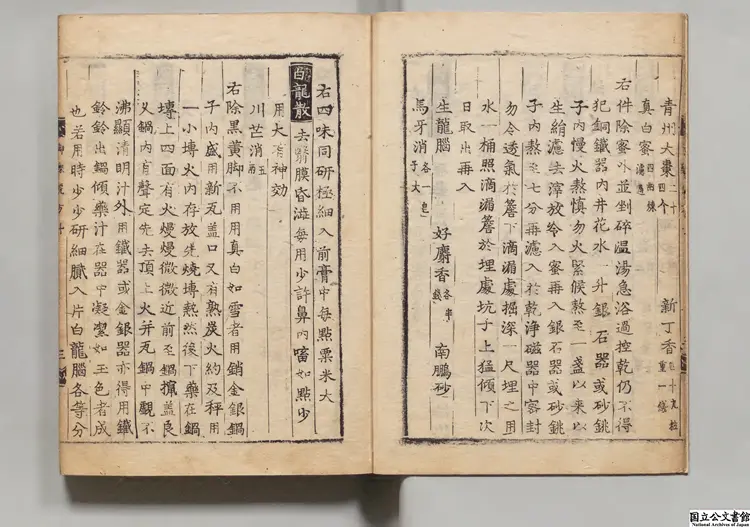 青州大棗二十四个　新丁香
真白蜜
右件除蜜外並剉碎温湯急浴過控乾仍不得
犯銅鐵器内井花水一升銀石器或砂銚
子内慢火熬慎勿火緊候熬至一盞以来以
生絹濾去滓放冷入蜜再入銀石器或砂銚
子内熬至七分再濾入於乾浄磁器中密封
勿令透氣於簷下滴漏處掘深一尺埋之用
水一桶照滴漏簷於埋處坑子上猛傾下次
日取出再入
生龍腦　好麝香　南鵬砂
馬牙消
右四味同研極細入前膏中每點粟米大
龍散　去翳膜昏澁每用少許鼻内㗜如點少
用大有神効
川芒消
右除黒黄脚不用用真白如雪者用銷金銀鍋
子内盛用新瓦盖口又有熟炭火約及秤用
一小塼火内存放先燒塼熱然後下藥在鍋
塼上四面有火熳熳微微近前至鍋擁盖良
乆鍋内有聲定先去頂上火并瓦鍋中覷不
沸顯清明汁外用鐵器或金銀器亦得用鐵
鈴鈴出鍋傾藥汁在器中凝潔如玉色者成
也若用時少少研細臘入片白龍腦各等分
国立公文書館
National Archives of Japan